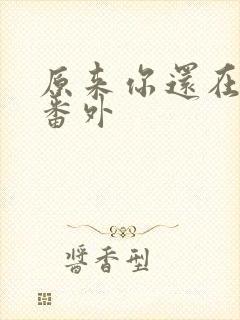 原来你還在
番外
醬香型